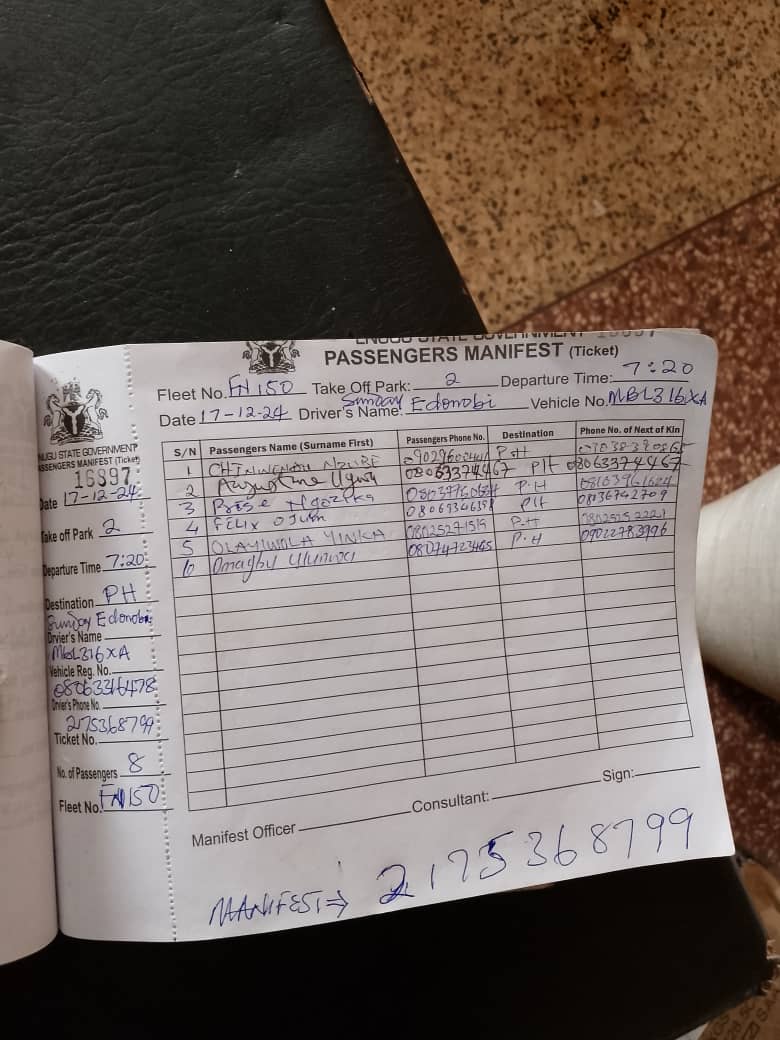 NUGU STATE GOVERNMENT
ASSENGERS MANIFEST (Ticket)
16897
Date 17-12-24
Take off Park 2
Departure Time 7:20
Destination PH
Sunday Edonobi
Drvier's Name
MBL316XA
Vehicle Reg. No.
08063316478
Driver's Phone No.
2175368799
Ticket No.
No. of Passengers 8
Fleet No. FN150
ENUGU STATE GOVERNMENT 16897
PASSENGERS MANIFEST (Ticket)
Fleet No. FN150 Take Off Park: 2 Departure Time: 7:20
Date 17-12-24 Driver's Name: Sunday Edonobi Vehicle No. MBL316XA
S/N Passengers Name (Surname First) Passengers Phone No. Destination Phone No. of Next of Kin
1 P.H
2 Augustine 08063374467 PH 08063374467
3 P.H 08163961624
4 FELIX PH 08136742709
5 OLAYIWOLA YINKA 08025271519 P.H
6 08074723465 P.H 09022783996
Manifest Officer Consultant: Sign:
MANIFEST⇒ 2175368799